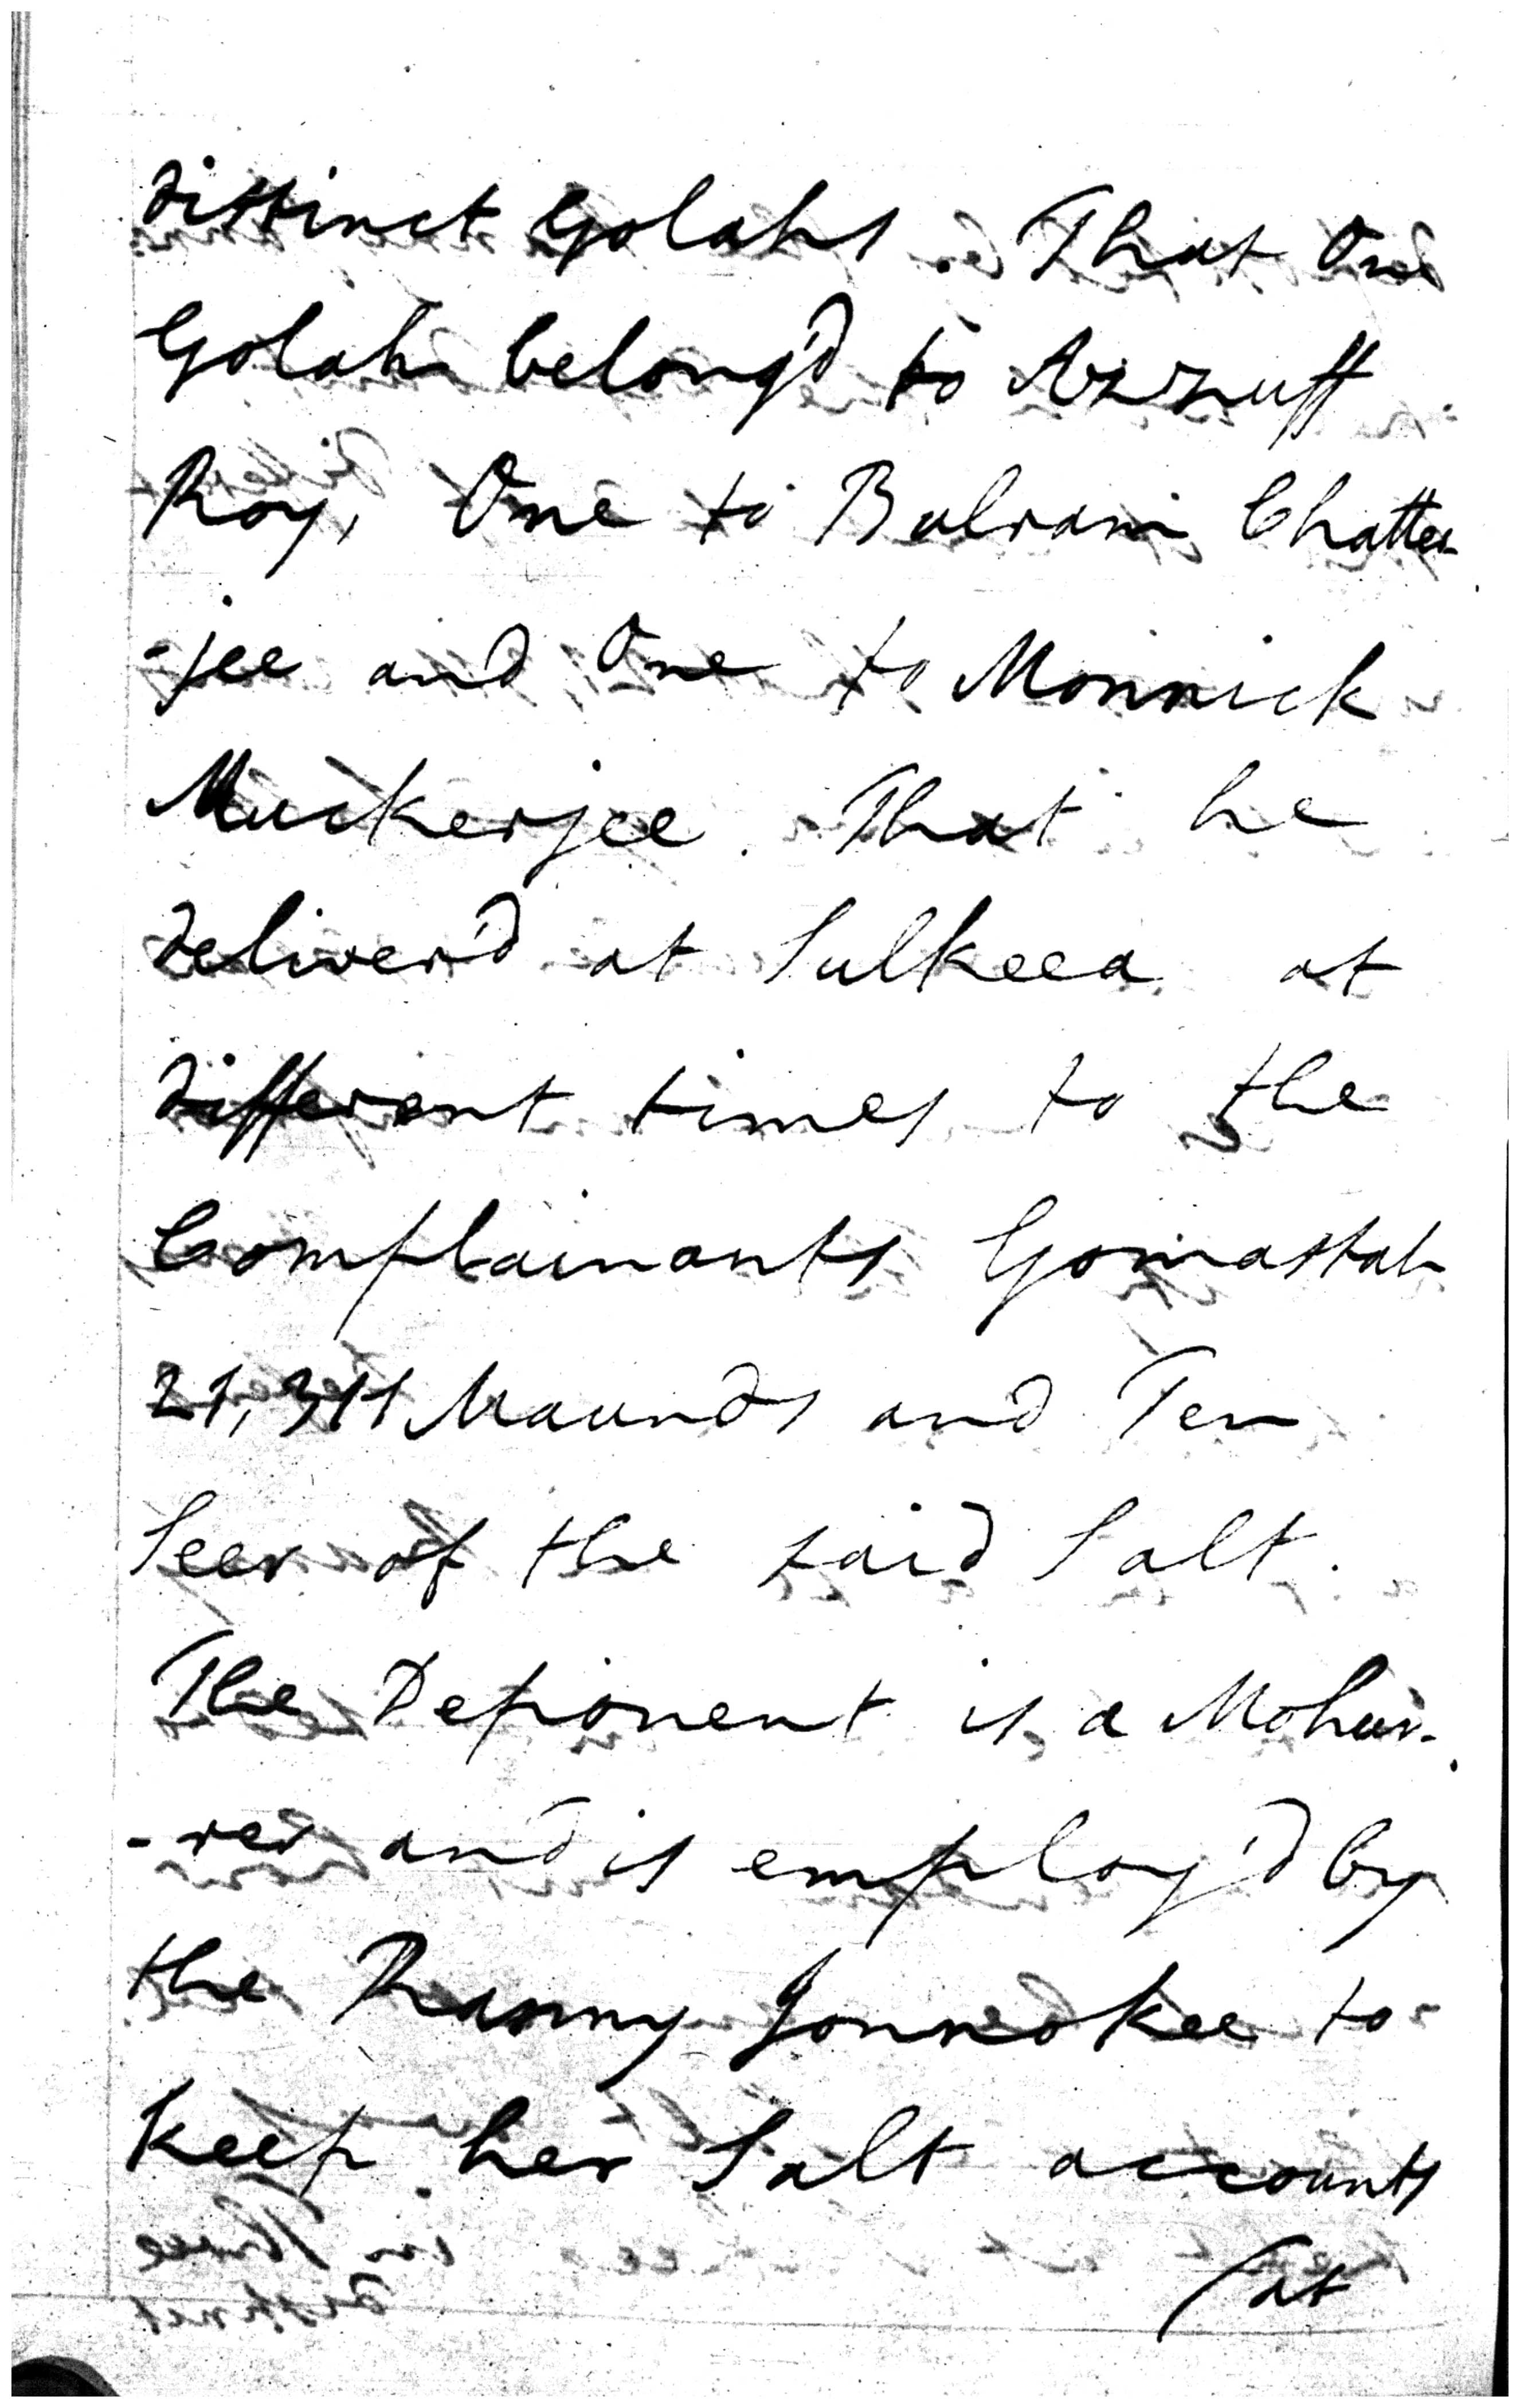 distinct Golahs. That One
Golah belong'd to Azzuff
Roy, One to Bulram Chatter-
-jee and One to Monnick
Muckerjee. That he
deliver'd at Sulkeea at
different times to the
Complainants Gomastah
21,311 Maunds and Ten
Seer of the said Salt.
The Deponent is a Mohur-
-rer and is employ'd by
the Ranny Jonnokee to
keep her Salt accounts
at